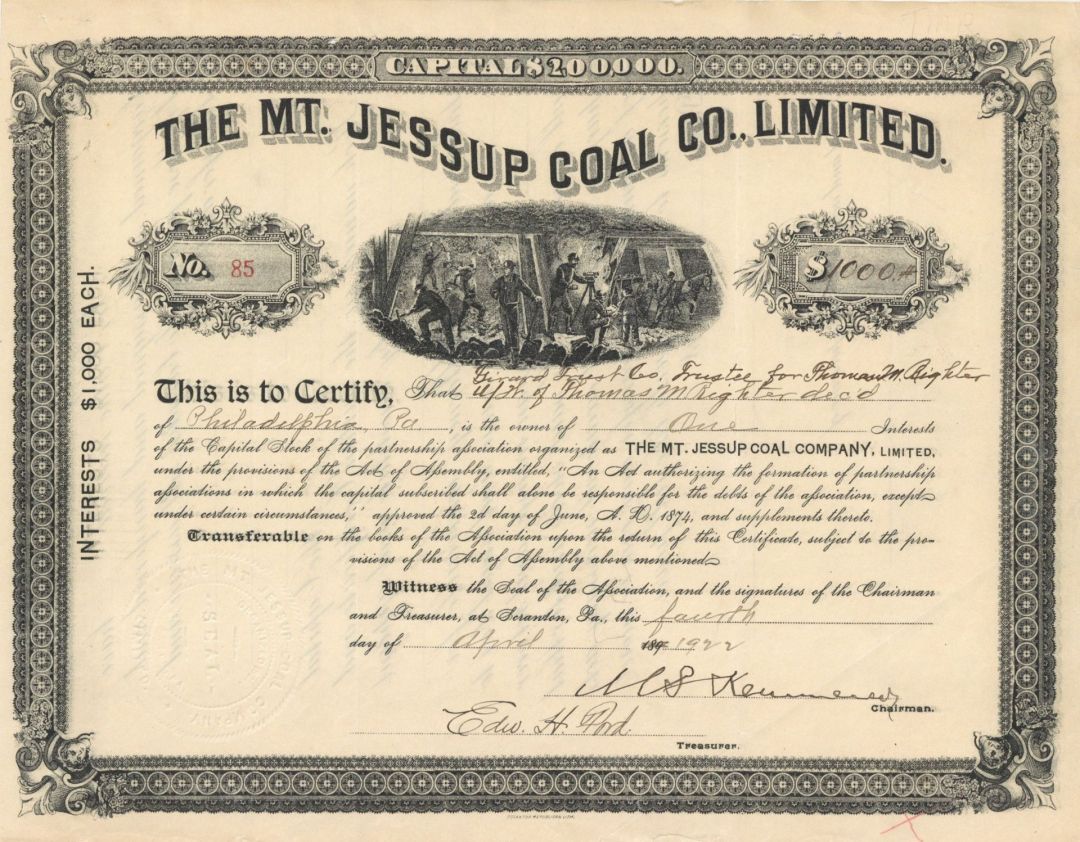 CAPITAL $200,000.
THE MT. JESSUP COAL CO., LIMITED.
No. 85
$1000.
INTERESTS $1,000 EACH.
Girard Trust Co. Trustee for Thomas M. Righter
This is to Certify, That U/W. of Thomas M Righter dec'd
of Philadelphia Pa , is the owner of One Interests
of the Capital Stock of the partnership association organized as THE MT. JESSUP COAL COMPANY, LIMITED,
under the provisions of the Act of Assembly, entitled, "An Act authorizing the formation of partnership
associations in which the capital subscribed shall alone be responsible for the debts of the association, except
under certain circumstances," approved the 2d day of June, A. D. 1874, and supplements thereto.
Transferable on the books of the Association upon the return of this Certificate, subject to the pro-
visions of the Act of Assembly above mentioned
Witness the Seal of the Association, and the signatures of the Chairman
and Treasurer, at Scranton, Pa., this fourth
day of April 189 1922
Chairman.
Edw. H. Ford.
Treasurer.
SCRANTON REPUBLICAN LITH.